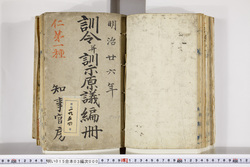 明治廿六年
訓令并訓示原議編冊
知事官房
仁第一種